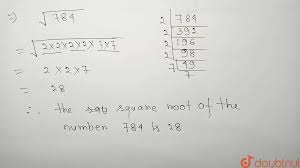 ⇒) √784
= √2×2×2×2×7×7
= 2×2×7
= 28
∴ the squ square root of the
number 784 is 28
2 | 784
2 | 392
2 | 196
2 | 98
7 | 49
7
doubtnut